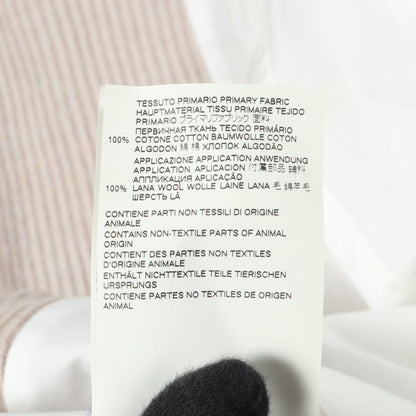 TESSUTO PRIMARIO PRIMARY FABRIC
HAUPTMATERIAL TISSU PRIMAIRE TEJIDO
PRIMARIO プライマリファブリック 面料
ПЕРВИЧНАЯ ТКАНЬ TECIDO PRIMÁRIO
100% COTONE COTTON BAUMWOLLE COTON
ALGODON 綿 棉 ХЛОПОК ALGODÃO
APPLICAZIONE APPLICATION ANWENDUNG
APPLICATION APLICACION 付属部品 辅料
АППЛИКАЦИЯ APLICAÇÃO
100% LANA WOOL WOLLE LAINE LANA 毛 绵羊毛
ШЕРСТЬ LÃ
CONTIENE PARTI NON TESSILI DI ORIGINE
ANIMALE
CONTAINS NON-TEXTILE PARTS OF ANIMAL
ORIGIN
CONTIENT DES PARTIES NON TEXTILES
D'ORIGINE ANIMALE
ENTHÄLT NICHTTEXTILE TEILE TIERISCHEN
URSPRUNGS
CONTIENE PARTES NO TEXTILES DE ORIGEN
ANIMAL